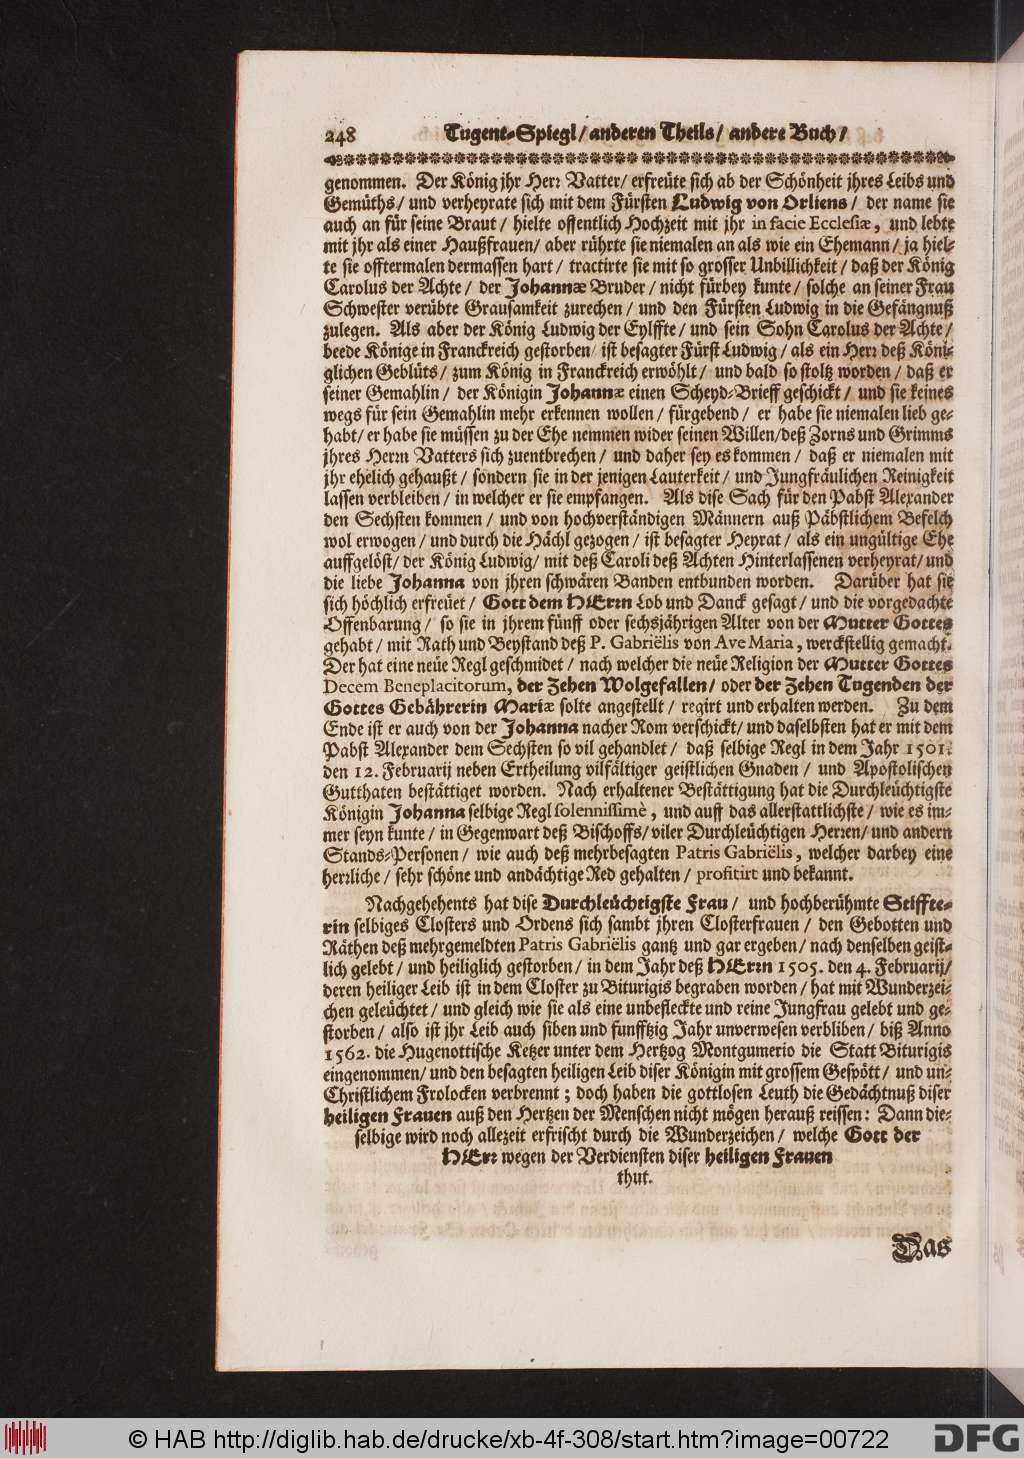 248 Tugent-Spiegl/ anderen Theils/ andere Buch/
genommen. Der König jhr Herr Vatter/ erfreüte sich ab der Schönheit jhres Leibs und
Gemüths/ und verheyrate sich mit dem Fürsten Ludwig von Orliens/ der name sie
auch an für seine Braut/ hielte offentlich Hochzeit mit jhr in facie Ecclesiæ, und lebte
mit jhr als einer Haußfrauen/ aber rührte sie niemalen an als wie ein Ehemann/ ja hiel-
te sie offtermalen dermassen hart/ tractirte sie mit so grosser Unbillichkeit/ daß der König
Carolus der Achte/ der Johannæ Bruder/ nicht fürbey kunte/ solche an seiner Frau
Schwester verübte Grausamkeit zurechen/ und den Fürsten Ludwig in die Gefängnuß
zulegen. Als aber der König Ludwig der Eylffte/ und sein Sohn Carolus der Achte/
beede Könige in Franckreich gestorben/ ist besagter Fürst Ludwig/ als ein Herr deß König-
lichen Geblüts/ zum König in Franckreich erwöhlt/ und bald so stoltz worden/ daß er
seiner Gemahlin/ der Königin Johannæ einen Scheyd-Brieff geschickt/ und sie keines
wegs für sein Gemahlin mehr erkennen wollen/ fürgebend/ er habe sie niemalen lieb ge-
habt/ er habe sie müssen zu der Ehe nemmen wider seinen Willen/ deß Zorns und Grimms
jhres Herrn Vatters sich zuentbrechen/ und daher sey es kommen/ daß er niemalen mit
jhr ehelich gehaußt/ sondern sie in der jenigen Lauterkeit/ und Jungfräulichen Reinigkeit
lassen verbleiben/ in welcher er sie empfangen. Als dise Sach für den Pabst Alexander
den Sechsten kommen/ und von hochverständigen Männern auß Päbstlichem Befelch
wol erwogen/ und durch die Hächl gezogen/ ist besagter Heyrat/ als ein ungültige Ehe
auffgelöst/ der König Ludwig/ mit deß Caroli deß Achten Hinterlassenen verheyrat/ und
die liebe Johanna von jhren schwären Banden entbunden worden. Darüber hat sie
sich höchlich erfreüet/ Gott dem HErrn Lob und Danck gesagt/ und die vorgedachte
Offenbarung/ so sie in jhrem fünff oder sechsjährigen Alter von der Mutter Gottes
gehabt/ mit Rath und Beystand deß P. Gabriëlis von Ave Maria, werckstellig gemacht.
Der hat eine neüe Regl geschmidet/ nach welcher die neüe Religion der Mutter Gottes
Decem Beneplacitorum, der Zehen Wolgefallen/ oder der Zehen Tugenden der
Gottes Gebährerin Mariæ solte angestellt/ regirt und erhalten werden. Zu dem
Ende ist er auch von der Johanna nacher Rom verschickt/ und daselbsten hat er mit dem
Pabst Alexander dem Sechsten so vil gehandlet/ daß selbige Regl in dem Jahr 1501.
den 12. Februarij neben Ertheilung vilfältiger geistlichen Gnaden/ und Apostolischen
Gutthaten bestättiget worden. Nach erhaltener Bestättigung hat die Durchleüchtigste
Königin Johanna selbige Regl solennissimè, und auff das allerstattlichste/ wie es im-
mer seyn kunte/ in Gegenwart deß Bischoffs/ viler Durchleüchtigen Herren/ und andern
Stands-Personen/ wie auch deß mehrbesagten Patris Gabriëlis, welcher darbey eine
herrliche/ sehr schöne und andächtige Red gehalten/ profitirt und bekannt.
Nachgehehents hat dise Durchleüchtigste Frau/ und hochberühmte Stiffte-
rin selbiges Closters und Ordens sich sambt jhren Closterfrauen/ den Gebotten und
Räthen deß mehrgemeldten Patris Gabriëlis gantz und gar ergeben/ nach denselben geist-
lich gelebt/ und heiliglich gestorben/ in dem Jahr deß HErrn 1505. den 4. Februarij/
deren heiliger Leib ist in dem Closter zu Biturigis begraben worden/ hat mit Wunderzei-
chen geleüchtet/ und gleich wie sie als eine unbefleckte und reine Jungfrau gelebt und ge-
storben/ also ist jhr Leib auch siben und funfftzig Jahr unverwesen verbliben/ biß Anno
1562. die Hugenottische Ketzer unter dem Hertzog Montgumerio die Statt Biturigis
eingenommen/ und den besagten heiligen Leib diser Königin mit grossem Gespött/ und un-
Christlichem Frolocken verbrennt; doch haben die gottlosen Leuth die Gedächtnuß diser
heiligen Frauen auß den Hertzen der Menschen nicht mögen herauß reissen: Dann die-
selbige wird noch allezeit erfrischt durch die Wunderzeichen/ welche Gott der
HErr wegen der Verdiensten diser heiligen Frauen
thut.
Das
© HAB http://diglib.hab.de/drucke/xb-4f-308/start.htm?image=00722 DFG